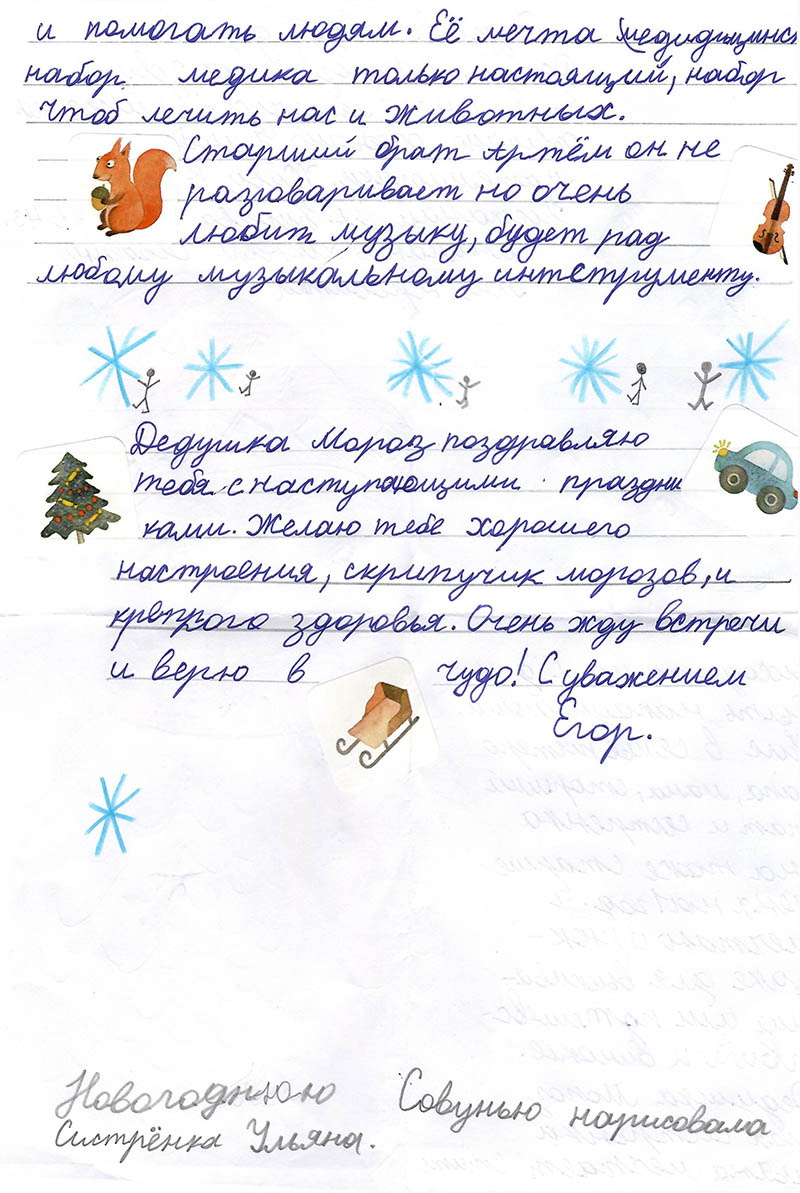 и помогать людям. Её мечта
набор медика только настоящий, набор
чтоб лечить нас и животных.
Старший брат Артём он не
разговаривает но очень
любит музыку, будет рад
любому музыкальному интструменту.
Дедушка Мороз поздравляю
тебя с наступающими праздни
ками. Желаю тебе хорошего
настроения, скрипучик морозов, и
крепкого здоровья. Очень жду встречи
и верю в чудо! С уважением
Егор.
Новогоднюю Совунью нарисовала
Систрёнка Ульяна.